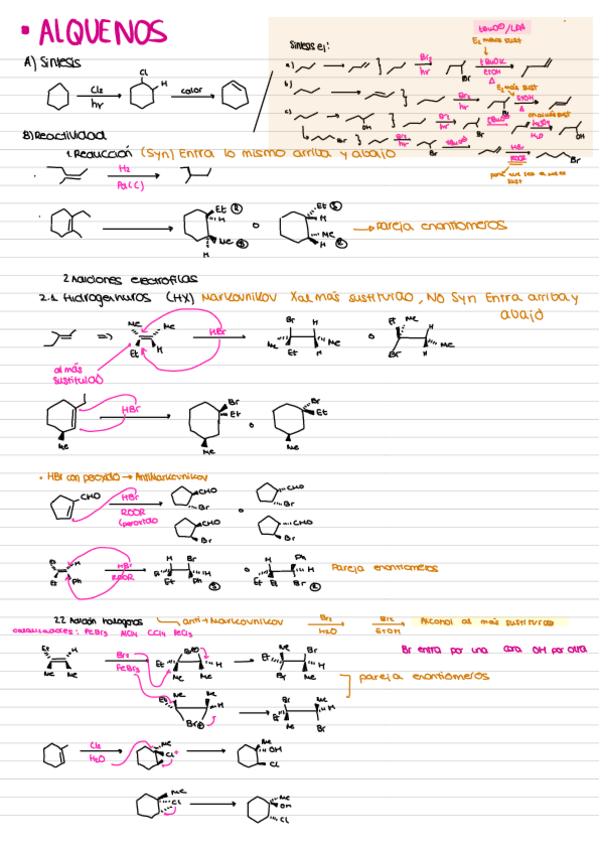 • ALQUENOS
A) Síntesis
Cl2
hr
Cl
H
calor
Síntesis ej:
tBuOO/LDA
E2 menos sust
a)
Br2
hr
Br
tBuOK
EtOH
Δ
b)
Br2
hr
Br
E2 más sust
EtOH
Δ
c)
OH
Br2
hr
Br
H2O
OH
Br
Br2
hr
Br
HBr
ROOR
Br
B) Reactividad
1. Reducción (Syn) Entra lo mismo arriba y abajo
H2
Pd(C)
Et
H
Me
H
o
Et
H
Me
H
→ Pareja enantiómeros
2 Adiciones electrófilas
2.1 Hidrogenuros (HX) Markovnikov X al más sustituido, No Syn Entra arriba y
abajo
Me
Me
Et
H
HBr
Br
H
Me
Me
Et
H
o
Et
Me
H
Br
H
Me
al más
sustituido
HBr
Me
Br
Et
Me
o
Br
Et
Me
• HBr con peróxido → AntiMarkovnikov
CHO
HBr
ROOR
(peróxido
CHO
Br
o
CHO
Br
CHO
Br
CHO
Br
Et
H
Et
Ph
HBr
ROOR
H
Br
Et
H
Et
Ph
o
H
Ph
Et
H
Et
Br
Pareja enantiómeros
2.2 Adición halógenos
anti → Markovnikov
Br2
H2O
Br2
EtOH
Alcohol al más sustituido
catalizadores: FeBr3
Br entra por una cara OH por otra
Et
H
Me
Me
Br2
FeBr3
Br⊕
Et
H
Me
Me
Et
Me
Br
H
Br
Me
pareja enantiómeros
Et
Me
Me
H
Br⊕
Br
Me
Et
H
Me
Br
Cl2
H2O
Me
Cl+
Me
OH
Cl
Me
Cl
Me
OH
Cl